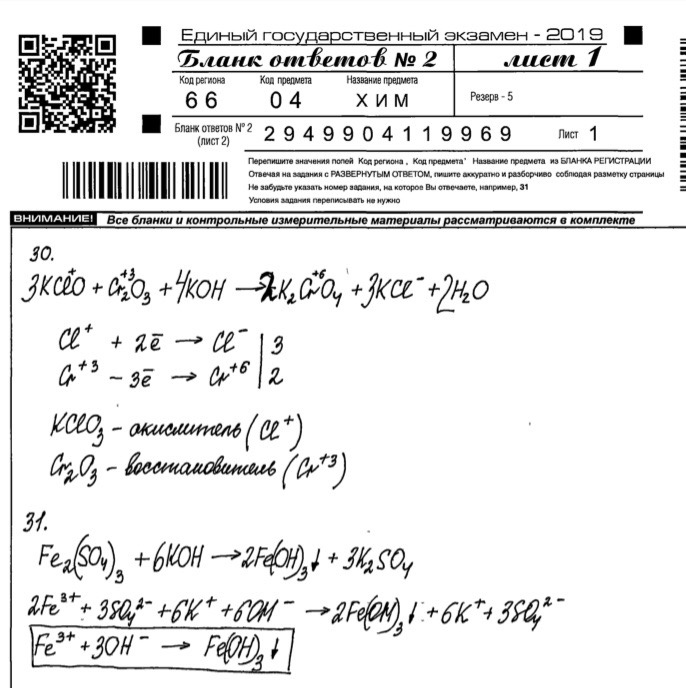 Единый государственный экзамен - 2019
Бланк ответов № 2 лист 1
Код региона Код предмета Название предмета
66 04 ХИМ Резерв - 5
Бланк ответов № 2 (лист 2) 2949904119969 Лист 1
Перепишите значения полей Код региона , Код предмета' Название предмета из БЛАНКА РЕГИСТРАЦИИ
Отвечая на задания с РАЗВЕРНУТЫМ ОТВЕТОМ, пишите аккуратно и разборчиво соблюдая разметку страницы
Не забудьте указать номер задания, на которое Вы отвечаете, например, 31
Условия задания переписывать не нужно
ВНИМАНИЕ! Все бланки и контрольные измерительные материалы рассматриваются в комплекте
30.
3KCl⁺O + Cr₂⁺³O₃ + 4KOH → 2K₂Cr⁺⁶O₄ + 3KCl⁻ + 2H₂O
Cl⁺ + 2ē → Cl⁻ | 3
Cr⁺³ - 3ē → Cr⁺⁶ | 2
KClO₃ - окислитель (Cl⁺)
Cr₂O₃ - восстановитель (Cr⁺³)
31.
Fe₂(SO₄)₃ + 6KOH → 2Fe(OH)₃↓ + 3K₂SO₄
2Fe³⁺ + 3SO₄²⁻ + 6K⁺ + 6OH⁻ → 2Fe(OH)₃↓ + 6K⁺ + 3SO₄²⁻
Fe³⁺ + 3OH⁻ → Fe(OH)₃↓